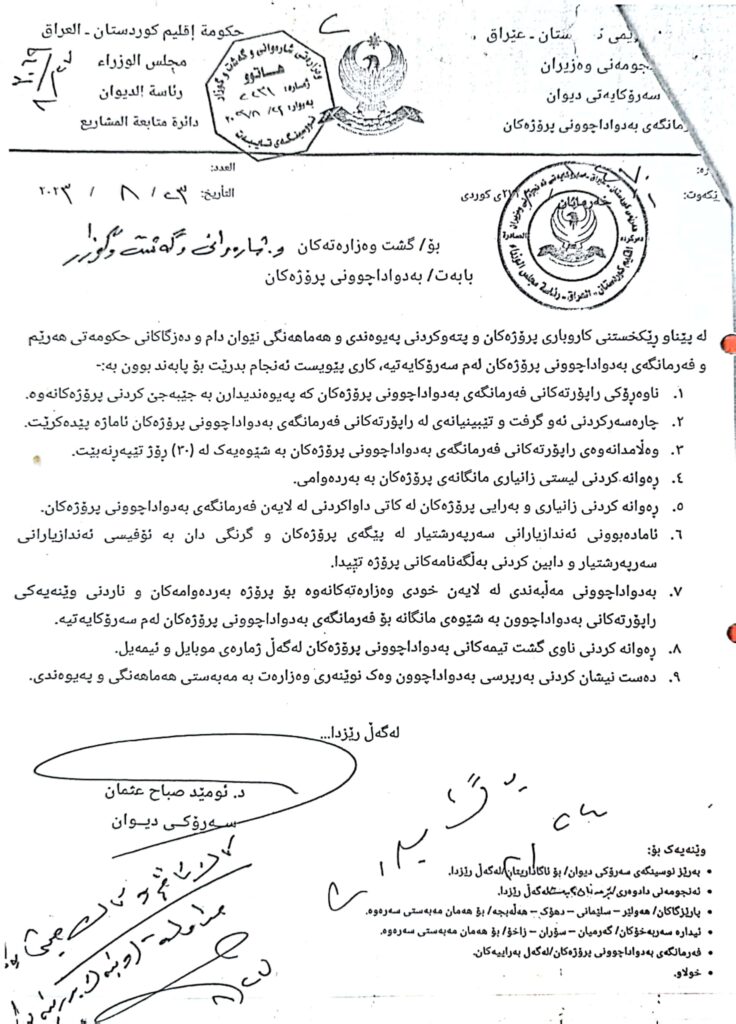 حكومة إقليم كوردستان ـ العراق
مجلس الوزراء
رئاسة الديوان
دائرة متابعة المشاريع
ستان - عێراق
نجومەنی وەزیران
سەرۆکایەتی دیوان
رمانگەی بەدواداچوونی پرۆژەکان
العدد:
التاريخ: ٢٣ / ٨ / ٢٠٢٣
ی کوردی
بۆ/ گشت وەزارەتەکان و. شارەوانی و گەشت و گوزار
بابەت/ بەدواداچوونی پرۆژەکان
لە پێناو ڕێکخستنی کاروباری پرۆژەکان و پتەوکردنی پەیوەندی و هەماهەنگی نێوان دام و دەزگاکانی حکومەتی هەرێم
و فەرمانگەی بەدواداچوونی پرۆژەکان لەم سەرۆکایەتیە، کاری پێویست ئەنجام بدرێت بۆ پابەند بوون بە:-
١. ناوەڕۆکی راپۆرتەکانی فەرمانگەی بەدواداچوونی پرۆژەکان کە پەیوەندیدارن بە جێبەجێ کردنی پرۆژەکانەوە.
٢. چارەسەرکردنی ئەو گرفت و تێبینیانەی لە راپۆرتەکانی فەرمانگەی بەدواداچوونی پرۆژەکان ئاماژە پێدەکرێت.
٣. وەڵامدانەوەی راپۆرتەکانی فەرمانگەی بەدواداچوونی پرۆژەکان بە شێوەیەک لە (٣٠) ڕۆژ تێپەڕنەبێت.
٤. ڕەوانە کردنی لیستی زانیاری مانگانەی پرۆژەکان بە بەردەوامی.
٥. ڕەوانە کردنی زانیاری و بەرایی پرۆژەکان لە کاتی داواکردنی لە لایەن فەرمانگەی بەدواداچوونی پرۆژەکان.
٦. ئامادەبوونی ئەندازیارانی سەرپەرشتیار لە پێگەی پرۆژەکان و گرنگی دان بە ئۆفیسی ئەندازیارانی
سەرپەرشتیار و دابین کردنی بەڵگەنامەکانی پرۆژە تێیدا.
٧. بەدواداچوونی مەڵبەندی لە لایەن خودی وەزارەتەکانەوە بۆ پرۆژە بەردەوامەکان و ناردنی وێنەیەکی
راپۆرتەکانی بەدواداچوون بە شێوەی مانگانە بۆ فەرمانگەی بەدواداچوونی پرۆژەکان لەم سەرۆکایەتیە.
٨. ڕەوانە کردنی ناوی گشت تیمەکانی بەدواداچوونی پرۆژەکان لەگەڵ ژمارەی موبایل و ئیمەیل.
٩. دەست نیشان کردنی بەرپرسی بەدواداچوون وەک نوێنەری وەزارەت بە مەبەستی هەماهەنگی و پەیوەندی.
لەگەڵ رێزدا...
د. ئومێد صباح عثمان
سەرۆکی دیوان
وێنەیەک بۆ:
• بەرێز نوسینگەی سەرۆکی دیوان/ بۆ ئاگاداریتان/لەگەڵ رێزدا.
• ئەنجومەنی دادوەری/ لەگەڵ رێزدا.
• پارێزگاکان/ هەولێر – سلێمانی – دهۆک – هەڵەبجە/ بۆ هەمان مەبەستی سەرەوە.
• ئیدارە سەربەخۆکان/ گەرمیان – سۆران – زاخۆ/ بۆ هەمان مەبەستی سەرەوە.
• فەرمانگەی بەدواداچوونی پرۆژەکان/لەگەڵ بەراییەکان.
• خولاو.